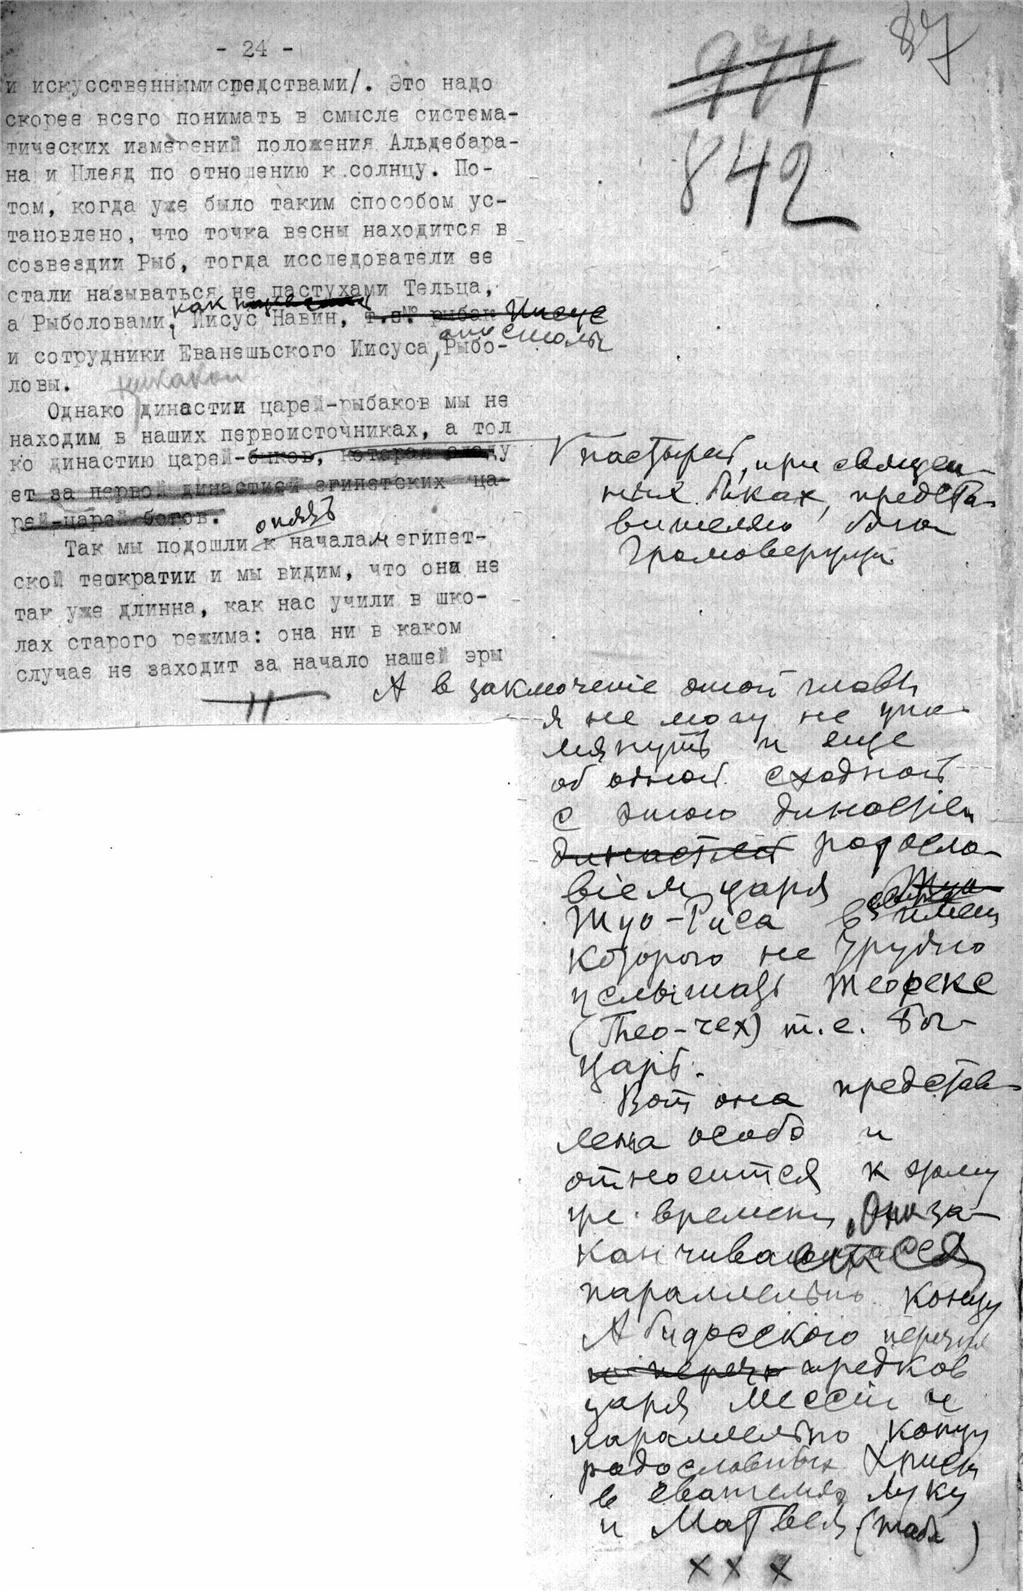 - 24 -
87
974
842
и искусственными средствами/. Это надо
скорее всего понимать в смысле система-
тических измерений положения Альдебара-
на и Плеяд по отношению к солнцу. По-
том, когда уже было таким способом ус-
тановлено, что точка весны находится в
созвездии Рыб, тогда исследователи ее
стали называться не пастухами Тельца,
как
а Рыболовами, Иисус Навин, рыбак Иисус
апостолы
и сотрудники Еванешьского Иисуса, Рыбо-
ловы.
никакой
Однако династии царей-рыбаков мы не
находим в наших первоисточниках, а тол
ко династию царей-быков, которая следу
ет за первой династией египетских ца-
рей-царей богов.
пастырей, при священ-
ных быках, предста-
вителях бога
Громовержца
опять
Так мы подошли к началам египет-
ской теократии и мы видим, что она не
так уже длинна, как нас учили в шко-
лах старого режима: она ни в каком
случае не заходит за начало нашей эры
А в заключение этой главы
я не могу не упо-
мянуть и еще
об одной сходной
с этою династіей
династией родосло-
віем царя
Туо-Риса в имени
которого не трудно
услышать Теорекс
(Тео-чех) т.е. Бог-
Царь.
Вот она представ-
лена особо и
относится к тому
же времени, она за-
канчивается
параллельно концу
Абидосского перечня
и перечн предков
царя Мессіи и
параллельно концу
родословных Христа
в евангелиях Луки
и Матвея (табл )
х х х